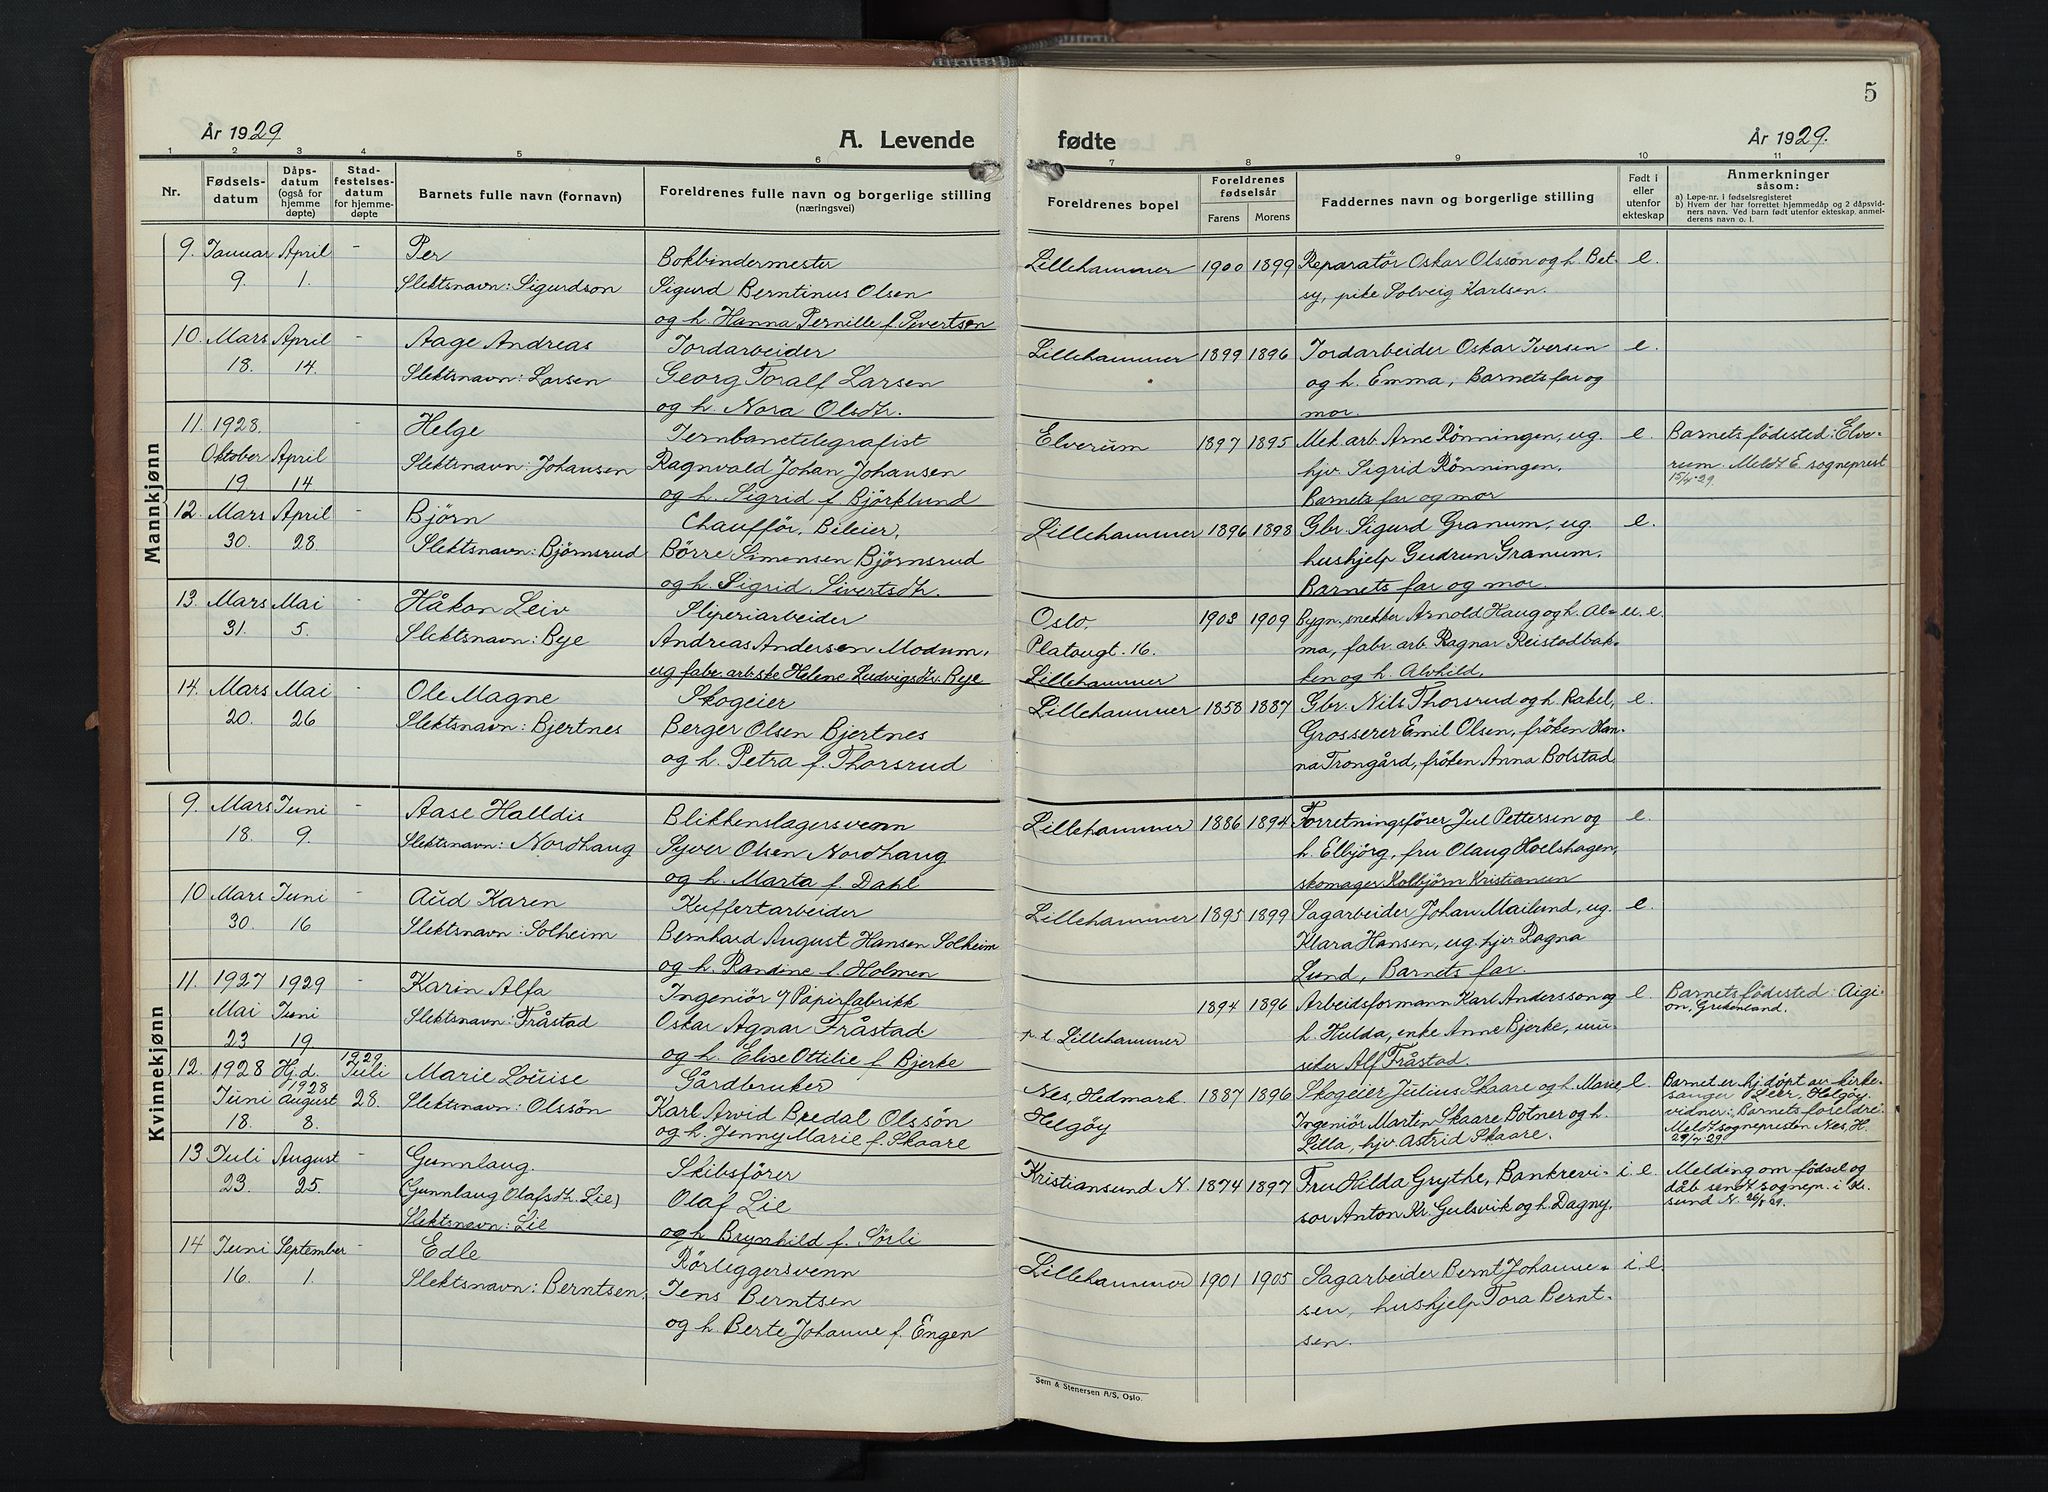 År 1929
A. Levende
1 2 3 4 5 6
Nr. Fødselsdatum Dåpsdatum (også for hjemmedøpte) Stadfestelsesdatum for hjemmedøpte Barnets fulle navn (fornavn) Foreldrenes fulle navn og borgerlige stilling (næringsvei)
Mannkjønn
9. Januar April - Per Bokbindermester
9. 1. Slektsnavn: Sigurdson Sigurd Berntinus Olsen
og h. Hanna Pernille f. Sivertsen
10. Mars April - Aage Andreas Jordarbeider
18. 14. Slektsnavn: Larsen Georg Toralf Larsen
og h. Nora Olsdtr.
11. 1928. Helge Jernbanetelegrafist
Oktober April Slektsnavn: Johansen Ragnvald Johan Johansen
19 14 og h. Sigrid f. Björklund
12. Mars April - Björn Chaufför, Bileier,
30. 28. Slektsnavn: Björnsrud Börre Simensen Björnsrud
og h. Sigrid Sivertsdtr.
13. Mars Mai - Håkon Leiv Sliperiarbeider
31. 5. Slektsnavn: Bye Andreas Andersen Modum,
ug fabr. arb.ske Helene Ludvigsdtr. Bye
14. Mars Mai - Ole Magne Skogeier
20. 26 Slektsnavn: Bjertnes Berger Olsen Bjertnes
og h. Petra f. Thorsrud
Kvinnekjønn
9. Mars Juni - Aase Halldis Blikkenslagersvenn
18. 9. Slektsnavn: Nordhaug Syver Olsen Nordhaug
og h. Marta f. Dahl
10 Mars Juni - Aud Karen Kuffertarbeider
30. 16 Slektsnavn: Solheim Bernhard August Hansen Solheim
og h. Randine f. Holmen
11. 1927 1929 - Karin Alfa Ingeniör v/ Papirfabrikk
Mai Juni Slektsnavn: Fråstad Oskar Agnar Fråstad
23 19 og h. Elise Ottilie f. Bjerke
12. 1928 Hj.d. 1929 Juli Marie Louise Gårdbruker
Juni 1928 August 28. Slektsnavn: Olssön Karl Arvid Bredal Olssön
18. 8. og h. Jenny Marie f. Skaare
13 Juli August - Gunnlaug. Skibsförer
23. 25. (Gunnlaug Olafsdtr. Lie) Olaf Lie
Slektsnavn: Lie og h Brynhild f. Sørli
14 Juni September - Edle Rörleggersvenn
16. 1. Slektsnavn: Berntsen. Jens Berntsen
og h. Berte Johanne f. Engen
5
fødte
År 1929.
7 8 9 10 11
Foreldrenes bopel Foreldrenes fødselsår Farens Morens Faddernes navn og borgerlige stilling Født i eller utenfor ekteskap Anmerkninger såsom:
a) Løpe-nr. i fødselsregisteret
b) Hvem der har forrettet hjemmedåp og 2 dåpsvidners navn. Ved barn født utenfor ekteskap, anmelderens navn o. l.
Lillehammer 1900 1899 Reparatör Oskar Olssön og h. Bet- e.
sy, pike Solveig Karlsen.
Lillehammer 1899 1896 Jordarbeider Oskar Iversen e.
og h. Emma, Barnets far og
mor.
Elverum 1897 1895 Mek. arb. Arne Rönningen, ug. e. Barnets födested: Elve-
hjv. Sigrid Rönningen. rum. Meldt E. sogneprest
Barnets far og mor 15/4-29.
Lillehammer 1896 1898 Gbr. Sigurd Granum, ug e.
hushjelp Gudrun Granum.
Barnets far og mor.
Oslo. 1903 1909 Bygn.snekker Arnold Haug og h. Al- u.e.
Platougt. 16. ma, fabr. arb. Ragnar Reistadbak-
Lillehammer ken og h. Alvhild.
Lillehammer 1858 1887 Gbr. Nils Thorsrud og h. Rakel, e.
Grosserer Emil Olsen, fröken Han-
na Trongård, fröken Anna Bolstad.
Lillehammer 1886 1894 Forretningsförer Jul Pettersen og e.
h. Elbjörg, fru Olaug Hoelshagen,
skomager Kolbjörn Kristiansen
Lillehammer 1895 1899 Sagarbeider Johan Mailund, ug. e.
Klara Hansen, ug. hjv Ragna
Lund, Barnets far.
1894 1896 Arbeidsformann Karl Andersson og e Barnets födested: Aigi-
p. t. Lillehammer h. Hulda, enke Anne Bjerke, mu- on, Grekenland.
siker Alf Fråstad.
Nes, Hedmark. 1887 1896 Skogeier Julius Skaare og h. Marie, e. Barnet er hj.döpt av kirke-
Helgöy Ingeniör Martin Skaare Botner og h. sanger Leer, Helgöy.
Lilla, hjv. Astrid Skaare. vidner: Barnets foreldre.
Meldt sognepresten Nes, H.
Kristiansund N. 1874 1897 Fru Hilda Grythe, Bankrevi- i. e. Melding om födsel og
sor Anton Kr. Gulsvik og h. Dagny. dåb sendt sognepr. i Kr.
sund N. 26/8 29.
Lillehammer 1901 1905 Sagarbeider Bernt Johanne- i. e.
sen, hushjelp Tora Bernt-
sen.
Sem & Stenersen A/S, Oslo.